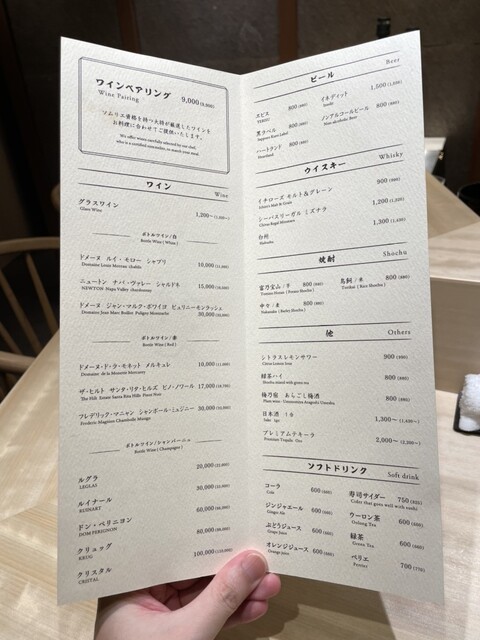 ワインペアリング 9,000(9,900)
Wine Pairing
ソムリエ資格を持つ大将が厳選したワインを
お料理に合わせてご提供いたします。
We offer wines carefully selected by our chef,
who is a certified sommelier, to match your meal.
ワイン Wine
グラスワイン 1,200〜
Glass Wine
ボトルワイン/白
Bottle Wine ( White )
ドメーヌ ルイ・モロー シャブリ 10,000(11,000)
Domaine Louis Moreau chablis
ニュートン ナパ・ヴァレー シャルドネ 15,000(16,500)
NEWTON Napa Valley Chardonnay
ドメーヌ ジャン・マルク・ボワイヨ ピュリニーモンラッシェ
Domaine Jean Marc Boillot Puligny Montrachet 30,000(33,000)
ボトルワイン/赤
Bottle Wine ( Red )
ドメーヌ・ド・ラ・モネット メルキュレ 10,000(11,000)
Domaine de la Monette Mercurey
ザ・ヒルト サンタ・リタ・ヒルズ ピノ・ノワール 17,000(18,700)
The Hilt Estate Santa Rita Hills Pinot Noir
フレデリック・マニャン シャンボール・ミュジニー 30,000(33,000)
Frederic Magnien Chambolle Musigny
ボトルワイン/シャンパーニュ
Bottle Wine ( Champagne )
ルグラ 20,000(22,000)
LEGLAS
ルイナール 30,000(33,000)
RUINART
ドン・ペリニヨン 60,000(66,000)
DOM PERIGNON
クリュッグ 80,000(88,000)
KRUG
クリスタル 100,000(110,000)
CRISTAL
ビール Beer
�​ビス 800(880)
YEBISU
イネディット 1,500
Inedit
黒ラベル 800(880)
Sapporo Kuro Label
ノンアルコールビール 800(880)
Non-alcoholic Beer
ハートランド 800(880)
Heartland
ウイスキー Whisky
イチローズ モルト＆グレーン 900(990)
Ichiro's Malt & Grain
シーバスリーガル ミズナラ 1,200(1,320)
Chivas Regal Mizunara
白州 1,300(1,430)
Hakushu
焼酎 Shochu
富乃宝山/芋 800(880)
Tomino Hozan ( Potato Shochu )
鳥飼/米 800(880)
Torikai ( Rice Shochu )
中々/麦 800(880)
Nakanaka ( Barley Shochu )
他 Others
シトラスレモンサワー 900(990)
Citrus Lemon Sour
緑茶ハイ 800(880)
Shochu mixed with green tea
梅乃宿 あらごし梅酒 800(880)
Plum wine - Umenoyado Aragoshi Umeshu
日本酒 1合 1,300〜(1,430〜)
Sake 1go
プレミアムテキーラ 2,000〜(2,200〜)
Premium Tequila
ソフトドリンク Soft drink
コーラ 600(660)
Cola
寿司サイダー 750(825)
Cider that goes well with sushi
ジンジャエール 600(660)
Ginger Ale
ウーロン茶 600(660)
Oolong Tea
ぶどうジュース 600(660)
Grape Juice
緑茶 600(660)
Green Tea
オレンジジュース 600(660)
Orange juice
ペリエ 700(770)
Perrier